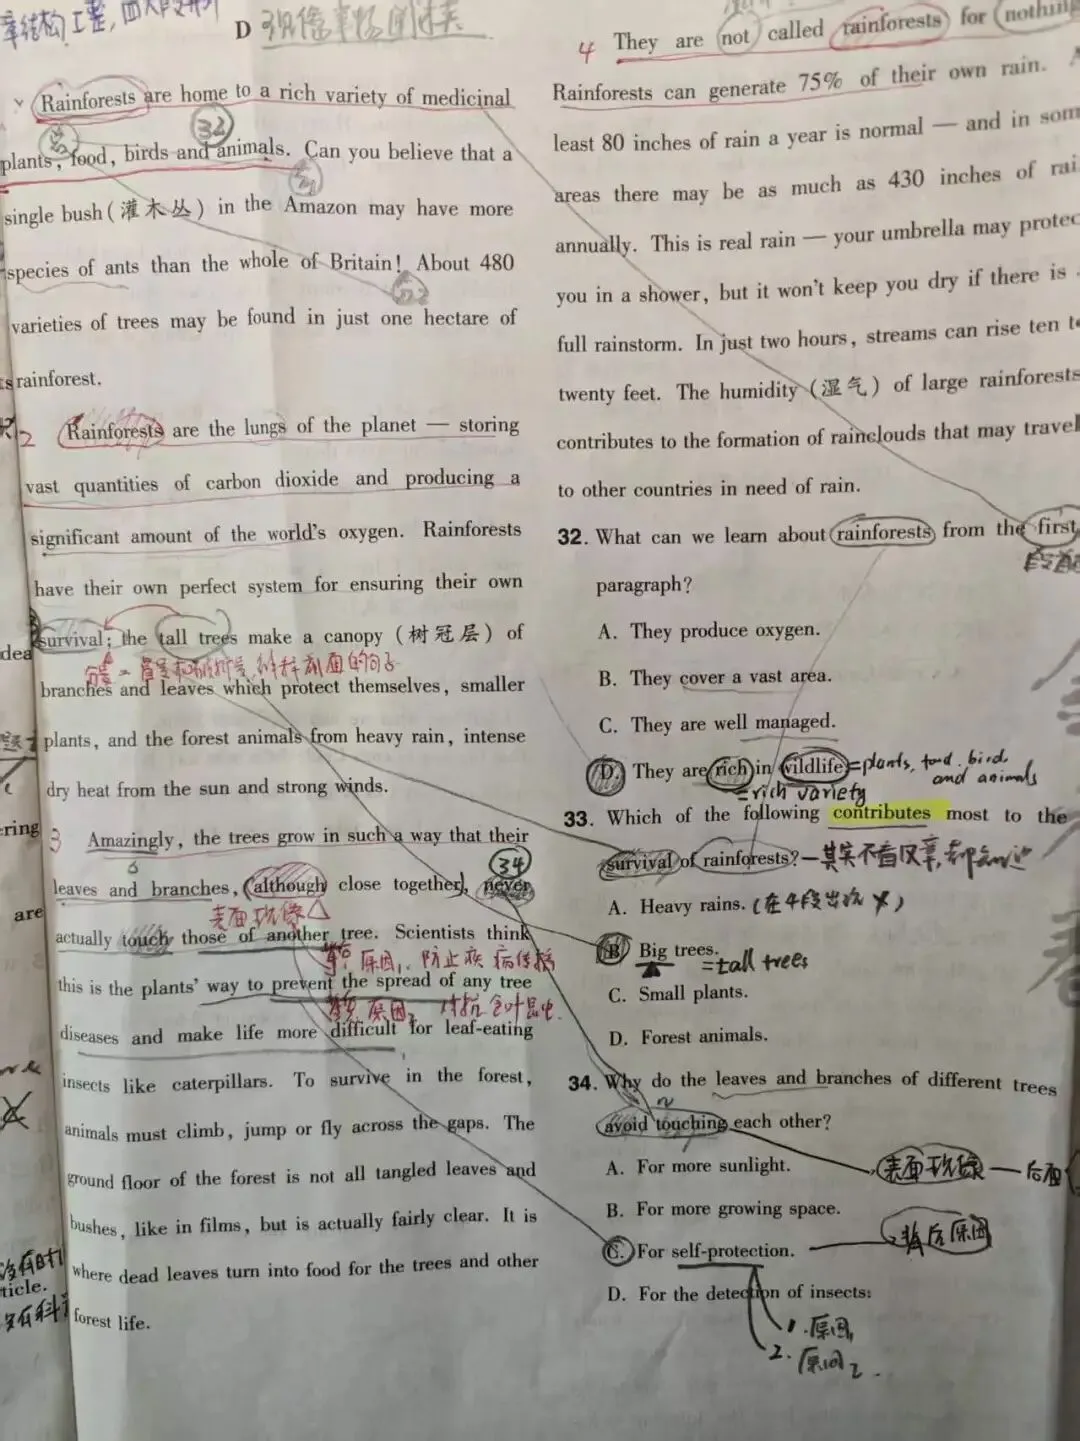 章结构工整,
D
Rainforests are home to a rich variety of medicinal
32
plants, food, birds and animals. Can you believe that a
single bush(灌木丛) in the Amazon may have more
species of ants than the whole of Britain! About 480
varieties of trees may be found in just one hectare of
rainforest.
2 Rainforests are the lungs of the planet — storing
vast quantities of carbon dioxide and producing a
significant amount of the world's oxygen. Rainforests
have their own perfect system for ensuring their own
survival; the tall trees make a canopy (树冠层) of
branches and leaves which protect themselves, smaller
plants, and the forest animals from heavy rain, intense
dry heat from the sun and strong winds.
3 Amazingly, the trees grow in such a way that their
34
leaves and branches, although close together, never
表面现象
actually touch those of another tree. Scientists think
原因1. 防止疾病传播
this is the plants' way to prevent the spread of any tree
原因2
diseases and make life more difficult for leaf-eating
insects like caterpillars. To survive in the forest,
animals must climb, jump or fly across the gaps. The
ground floor of the forest is not all tangled leaves and
bushes, like in films, but is actually fairly clear. It is
where dead leaves turn into food for the trees and other
forest life.
4 They are not called rainforests for nothing
Rainforests can generate 75% of their own rain.
least 80 inches of rain a year is normal — and in som
areas there may be as much as 430 inches of rai
annually. This is real rain — your umbrella may protec
you in a shower, but it won't keep you dry if there is
full rainstorm. In just two hours, streams can rise ten t
twenty feet. The humidity (湿气) of large rainforests
contributes to the formation of rainclouds that may travel
to other countries in need of rain.
32. What can we learn about rainforests from the first
paragraph?
A. They produce oxygen.
B. They cover a vast area.
C. They are well managed.
D. They are rich in wildlife =plants, food, bird
and animals
=rich variety
33. Which of the following contributes most to the
survival of rainforests? 其实不看文章,
A. Heavy rains. (在4段出现 X)
B. Big trees.
=tall trees
C. Small plants.
D. Forest animals.
34. Why do the leaves and branches of different trees
avoid touching each other?
A. For more sunlight.
表面现象 — 后面
B. For more growing space.
背后原因
C. For self-protection.
D. For the detection of insects.
1. 原因1
2. 原因2.
dea
ring
are
ticle.